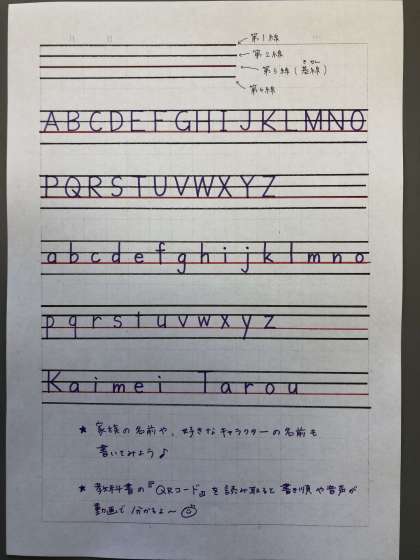 第1線
第2線
第3線(基線)
きせん
第4線
ABCDEFGHIJKLMNO
PQRSTUVWXYZ
abcdefghijklmno
pqrstuvwxyz
Kaimei Tarou
★ 家族の名前や、好きなキャラクターの名前も
書いてみよう♪
★ 教科書の『QRコード』を読み取ると書き順や音声が
動画で分かるよ〜